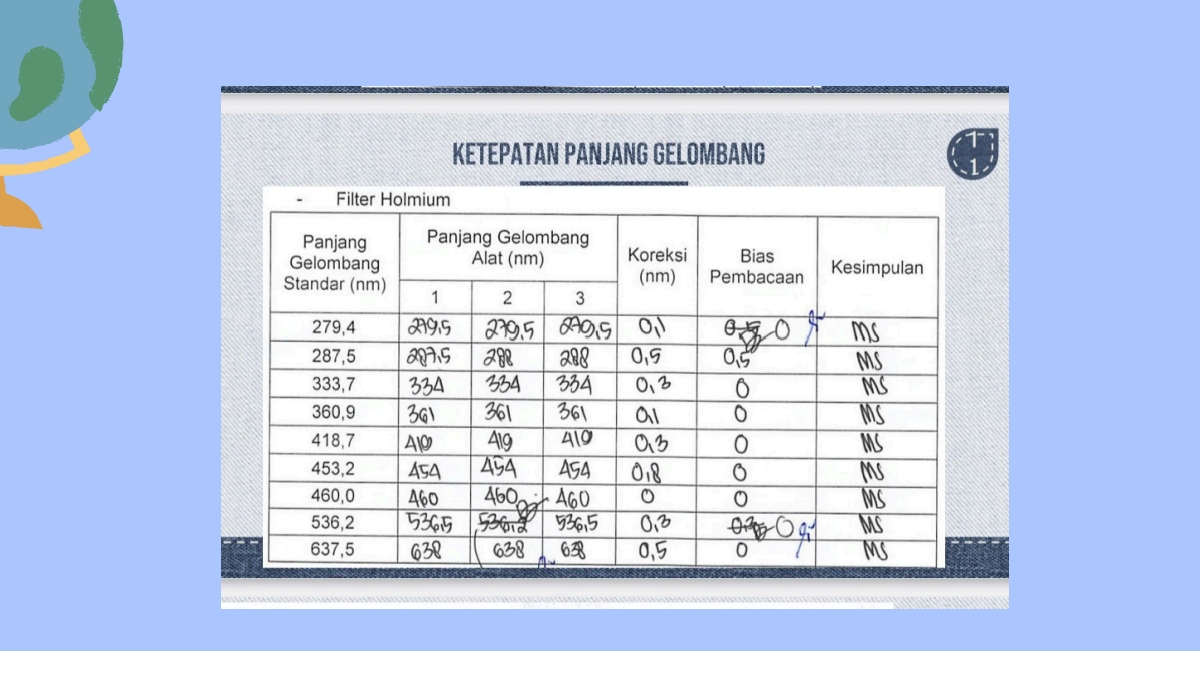 KETEPATAN PANJANG GELOMBANG
1
1
- Filter Holmium
Panjang Gelombang Standar (nm) Panjang Gelombang Alat (nm) Koreksi (nm) Bias Pembacaan Kesimpulan
1 2 3
279,4 279,5 279,5 279,5 0,1 0 MS
287,5 287,5 288 288 0,5 0,5 MS
333,7 334 334 334 0,3 0 MS
360,9 361 361 361 0,1 0 MS
418,7 419 419 419 0,3 0 MS
453,2 454 454 454 0,8 0 MS
460,0 460 460 460 0 0 MS
536,2 536,5 536,5 0,3 0 MS
637,5 638 638 638 0,5 0 MS